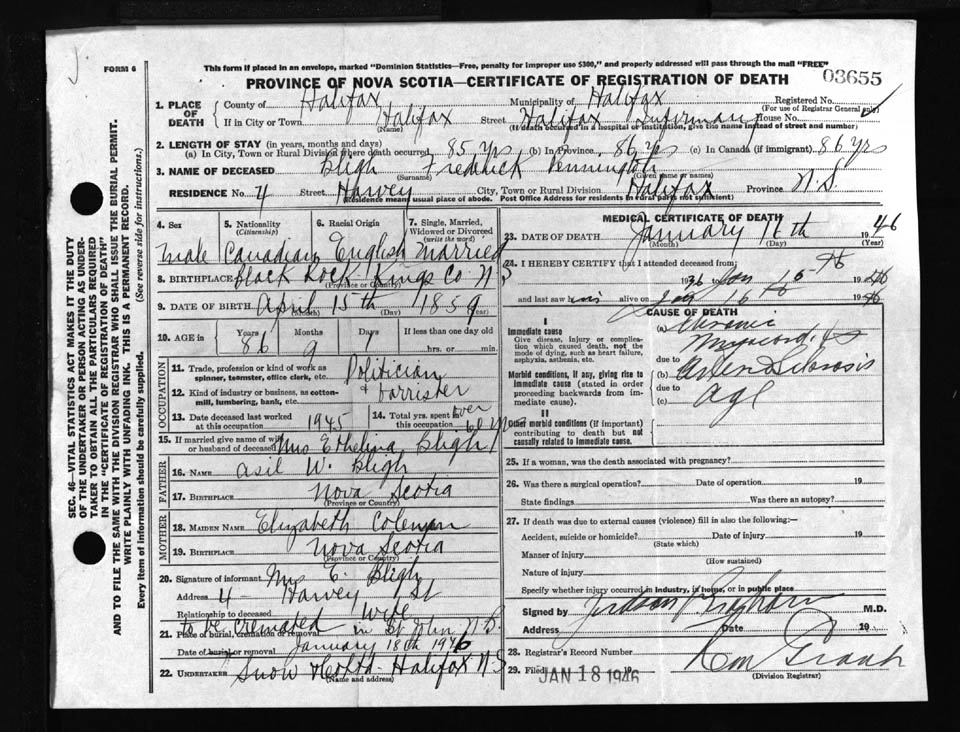 FORM 6
This form if placed in an envelope, marked "Dominion Statistics—Free, penalty for improper use $300," and properly addressed will pass through the mail "FREE"
PROVINCE OF NOVA SCOTIA—CERTIFICATE OF REGISTRATION OF DEATH
03655
1. PLACE OF DEATH
County of Halifax Municipality of Halifax Registered No.
(For use of Registrar General only)
If in City or Town Halifax Street Halifax Infirmary House No.
(Name) (If death occurred in a hospital or institution, give the name instead of street and number)
2. LENGTH OF STAY (in years, months and days)
(a) In City, Town or Rural Division where death occurred 85 yrs (b) In Province 86 yrs (c) In Canada (if immigrant) 86 yrs
3. NAME OF DECEASED Bligh Fredrick Pennington
(Surname) (Given name or names)
RESIDENCE No. 4 Street Harvey City, Town or Rural Division Halifax Province N.S.
(Residence means usual place of abode. Post Office Address for residents in rural parts not sufficient)
4. Sex 5. Nationality (Citizenship) 6. Racial Origin 7. Single, Married, Widowed or Divorced (write the word)
Male Canadian English Married
8. BIRTHPLACE Black Rock Kings Co. N S
(Province or Country)
9. DATE OF BIRTH April 15th 1859
(Month) (Day) (Year)
10. AGE in Years Months Days If less than one day old
86 9 1 hrs. or min.
OCCUPATION
11. Trade, profession or kind of work as spinner, teamster, office clerk, etc. Politician
12. Kind of industry or business, as cotton-mill, lumbering, bank, etc. & barrister
13. Date deceased last worked at this occupation 1945
14. Total yrs. spent in this occupation over 60 yrs
15. If married give name of wife or husband of deceased Mrs Ethelina Bligh
FATHER
16. NAME Asil W. Bligh
17. BIRTHPLACE Nova Scotia
(Province or Country)
MOTHER
18. MAIDEN NAME Elizabeth Coleman
19. BIRTHPLACE Nova Scotia
(Province or Country)
20. Signature of informant Mrs E. Bligh
Address 4 Harvey St
Relationship to deceased Wife
to be cremated in St John N B.
21. Place of burial, cremation or removal
Date of burial or removal January 18th 1946
22. UNDERTAKER Snow & Co Ltd - Halifax N.S
(Name and address)
MEDICAL CERTIFICATE OF DEATH
23. DATE OF DEATH January 16th 1946
(Month) (Day) (Year)
24. I HEREBY CERTIFY that I attended deceased from:
1936 Jan 16 1946
and last saw him alive on Jan 16 1946
CAUSE OF DEATH
I
Immediate cause
Give disease, injury or complication which caused death, not the mode of dying, such as heart failure, asphyxia, asthenia, etc.
(a) Chronic Myocarditis
due to
Morbid conditions, if any, giving rise to immediate cause (stated in order proceeding backwards from immediate cause).
(b) Arteriosclerosis
due to
(c) Age
II
Other morbid conditions (if important) contributing to death but not causally related to immediate cause.
25. If a woman, was the death associated with pregnancy?
26. Was there a surgical operation? Date of operation 19
State findings Was there an autopsy?
27. If death was due to external causes (violence) fill in also the following:—
Accident, suicide or homicide? Date of injury 19
(State which)
Manner of injury
(How sustained)
Nature of injury
Specify whether injury occurred in industry, in home, or in public place
Signed by Judson M.D.
Address Date 19
28. Registrar's Record Number
29. Filed JAN 18 1946
(Division Registrar)
SEC. 46—VITAL STATISTICS ACT MAKES IT THE DUTY
OF THE UNDERTAKER OR PERSON ACTING AS UNDERTAKER TO OBTAIN ALL THE PARTICULARS REQUIRED
IN THE "CERTIFICATE OF REGISTRATION OF DEATH"
AND TO FILE THE SAME WITH THE DIVISION REGISTRAR WHO SHALL ISSUE THE BURIAL PERMIT.
WRITE PLAINLY WITH UNFADING INK. THIS IS A PERMANENT RECORD.
Every item of information should be carefully supplied. (See reverse side for instructions.)